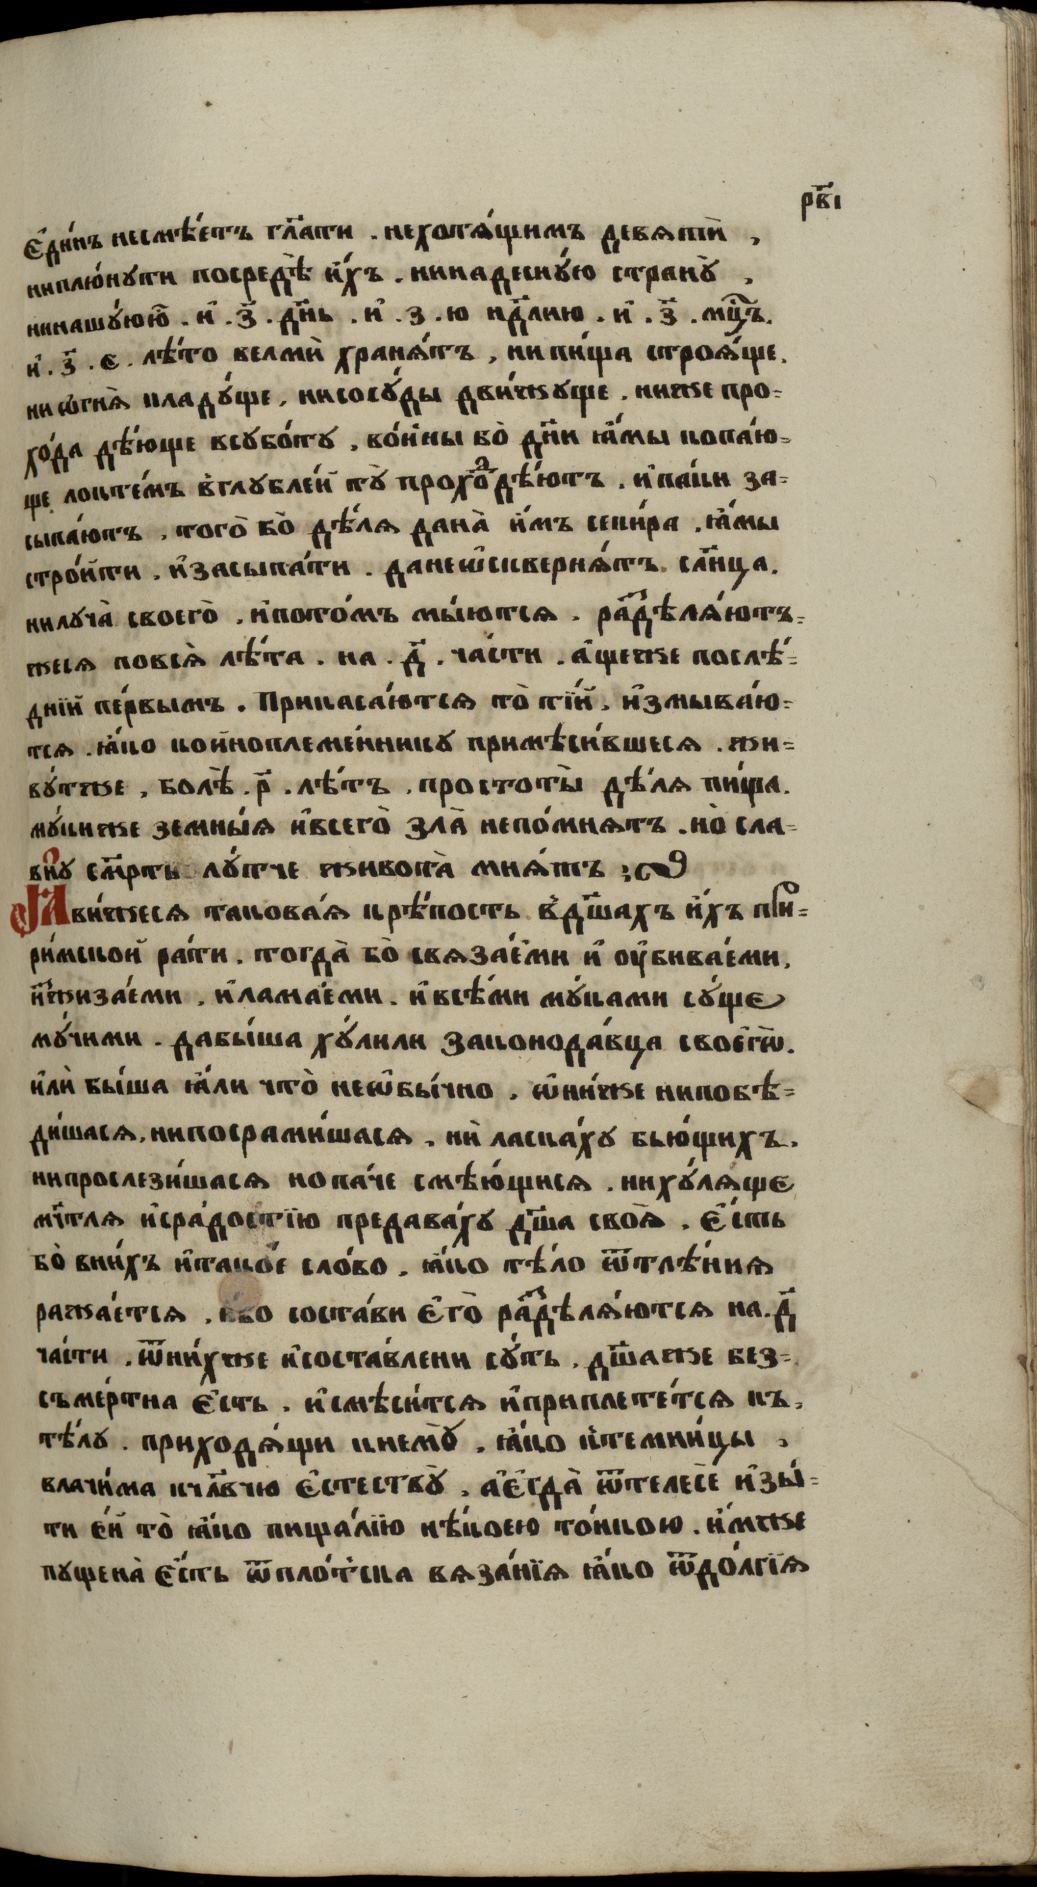 р҃в҃і
є҆ди́нъ несмѣ́етъ гл҃ати . нехотѧ́щимъ девѧти́й ,
ниплю́нути посредѣ̀ и҆́хъ . нинадесну́ю странꙋ̀ ,
ниꙗшꙋ́юю̀ . и҆ . з҃ . дн҃ь . и҆ . з . ю нд҃лю . и҆ . з҃ . мц҃ъ .
и҆ . з҃ . є . лѣ́то велмѝ хранѧ́тъ , ни пи́ща строѧ́ще .
ни ѡ҆гнѧ̀ кладꙋ́ще , нисосꙋ́ды дви́жуще . ниже про=
хо́да дѣ́юще всубо́ту . во́ины бо̀ дн҃и ꙗ҆́мы копа́ю=
ще локте́мъ в҆глуⷠлей тꙋ̀ прохоⷣдѣ́ютъ . и҆па́ки за=
сыпа́ютъ . того̀ бо̀ дѣ́лѧ дана̀ и҆́мъ секи́ра . ꙗ҆́мы
стро́ити . и҆засыпа́ти . данеѡ҆скверня́тъ сл҃нца .
нилуча̀ своего̀ . и҆пото́мъ мы́ютсѧ . раⷥдѣлѧ́ютъ=
жесѧ повсѧ̀ лѣ́та . на . д҃ . части . а҆́щеже послѣ́=
днїй пе́рвымъ . Прикаса́ютсѧ то̀ тїи . и҆змыва́ю=
тсѧ . ꙗ҆́ко ко́йноплеме́ннику примѣси́вшесѧ . жи=
ву́тже , болѣ̀ . р҃ . лѣ́тъ . простоты̀ дѣ́лѧ пи́ща .
му́киже земны́ѧ и҆всего̀ зла̀ непо́мнѧтъ . но̀ сла=
вну см҃рть лу́тче живота̀ мнѧ́тъ :
Ꙗ҆ви́жесѧ такова́ѧ крѣ́пость в҆дш҃ахъ и҆́хъ при=
ри́мской ра́ти . тогда̀ бо̀ свѧза́еми и҆ оу҆бива́еми .
и҆жиза́еми . и҆лама́еми . и҆всѣ́ми му́ками сꙋ́ще
мꙋ́чими . дабы́ша хꙋ́лили законода́вца своє́гѡ .
и҆лѝ бы́ша ꙗ҆́ли что̀ неѡ҆бы́чно . ѡ҆ни́же нипобѣ=
ди́шасѧ , нипосрами́шасѧ . нѝ ласка́ху бью́щихъ .
нипрослези́шасѧ нопа́че смѣю́щисѧ . нихꙋ́лѧще
мⷭ҇тлѧ и҆сра́достїю предава́ху дш҃а своѧ̀ . є҆́сть
бо̀ вни́хъ и҆тако́е сло́во . ꙗ҆́ко тѣ́ло ѿтлѣ́ниѧ
ража́етсѧ . и҆́бо соста́ви є҆го̀ раⷥдѣлѧ́ютсѧ на . д҃
части . ѿни́хже и҆соста́влени сꙋ́ть . дш҃аже без=
съме́ртна є҆́сть . и҆смѣси́тсѧ и҆приплете́тсѧ къ .
тѣ́лу . приходѧ́щи кнемꙋ̀ . ꙗ҆́ко к҆темни́цы ,
влачи́ма кчл҃вчю є҆стествꙋ̀ . а҆є҆гда̀ ѿтелесѐ и҆зы́=
ти є҆́й то̀ ꙗ҆́ко пища́лїю нѣ́коею то́нкою . и҆́мже
пущена̀ є҆́сть ѿпло́тска вѧза́нїѧ ꙗ҆́ко ѿдо́лгїѧ